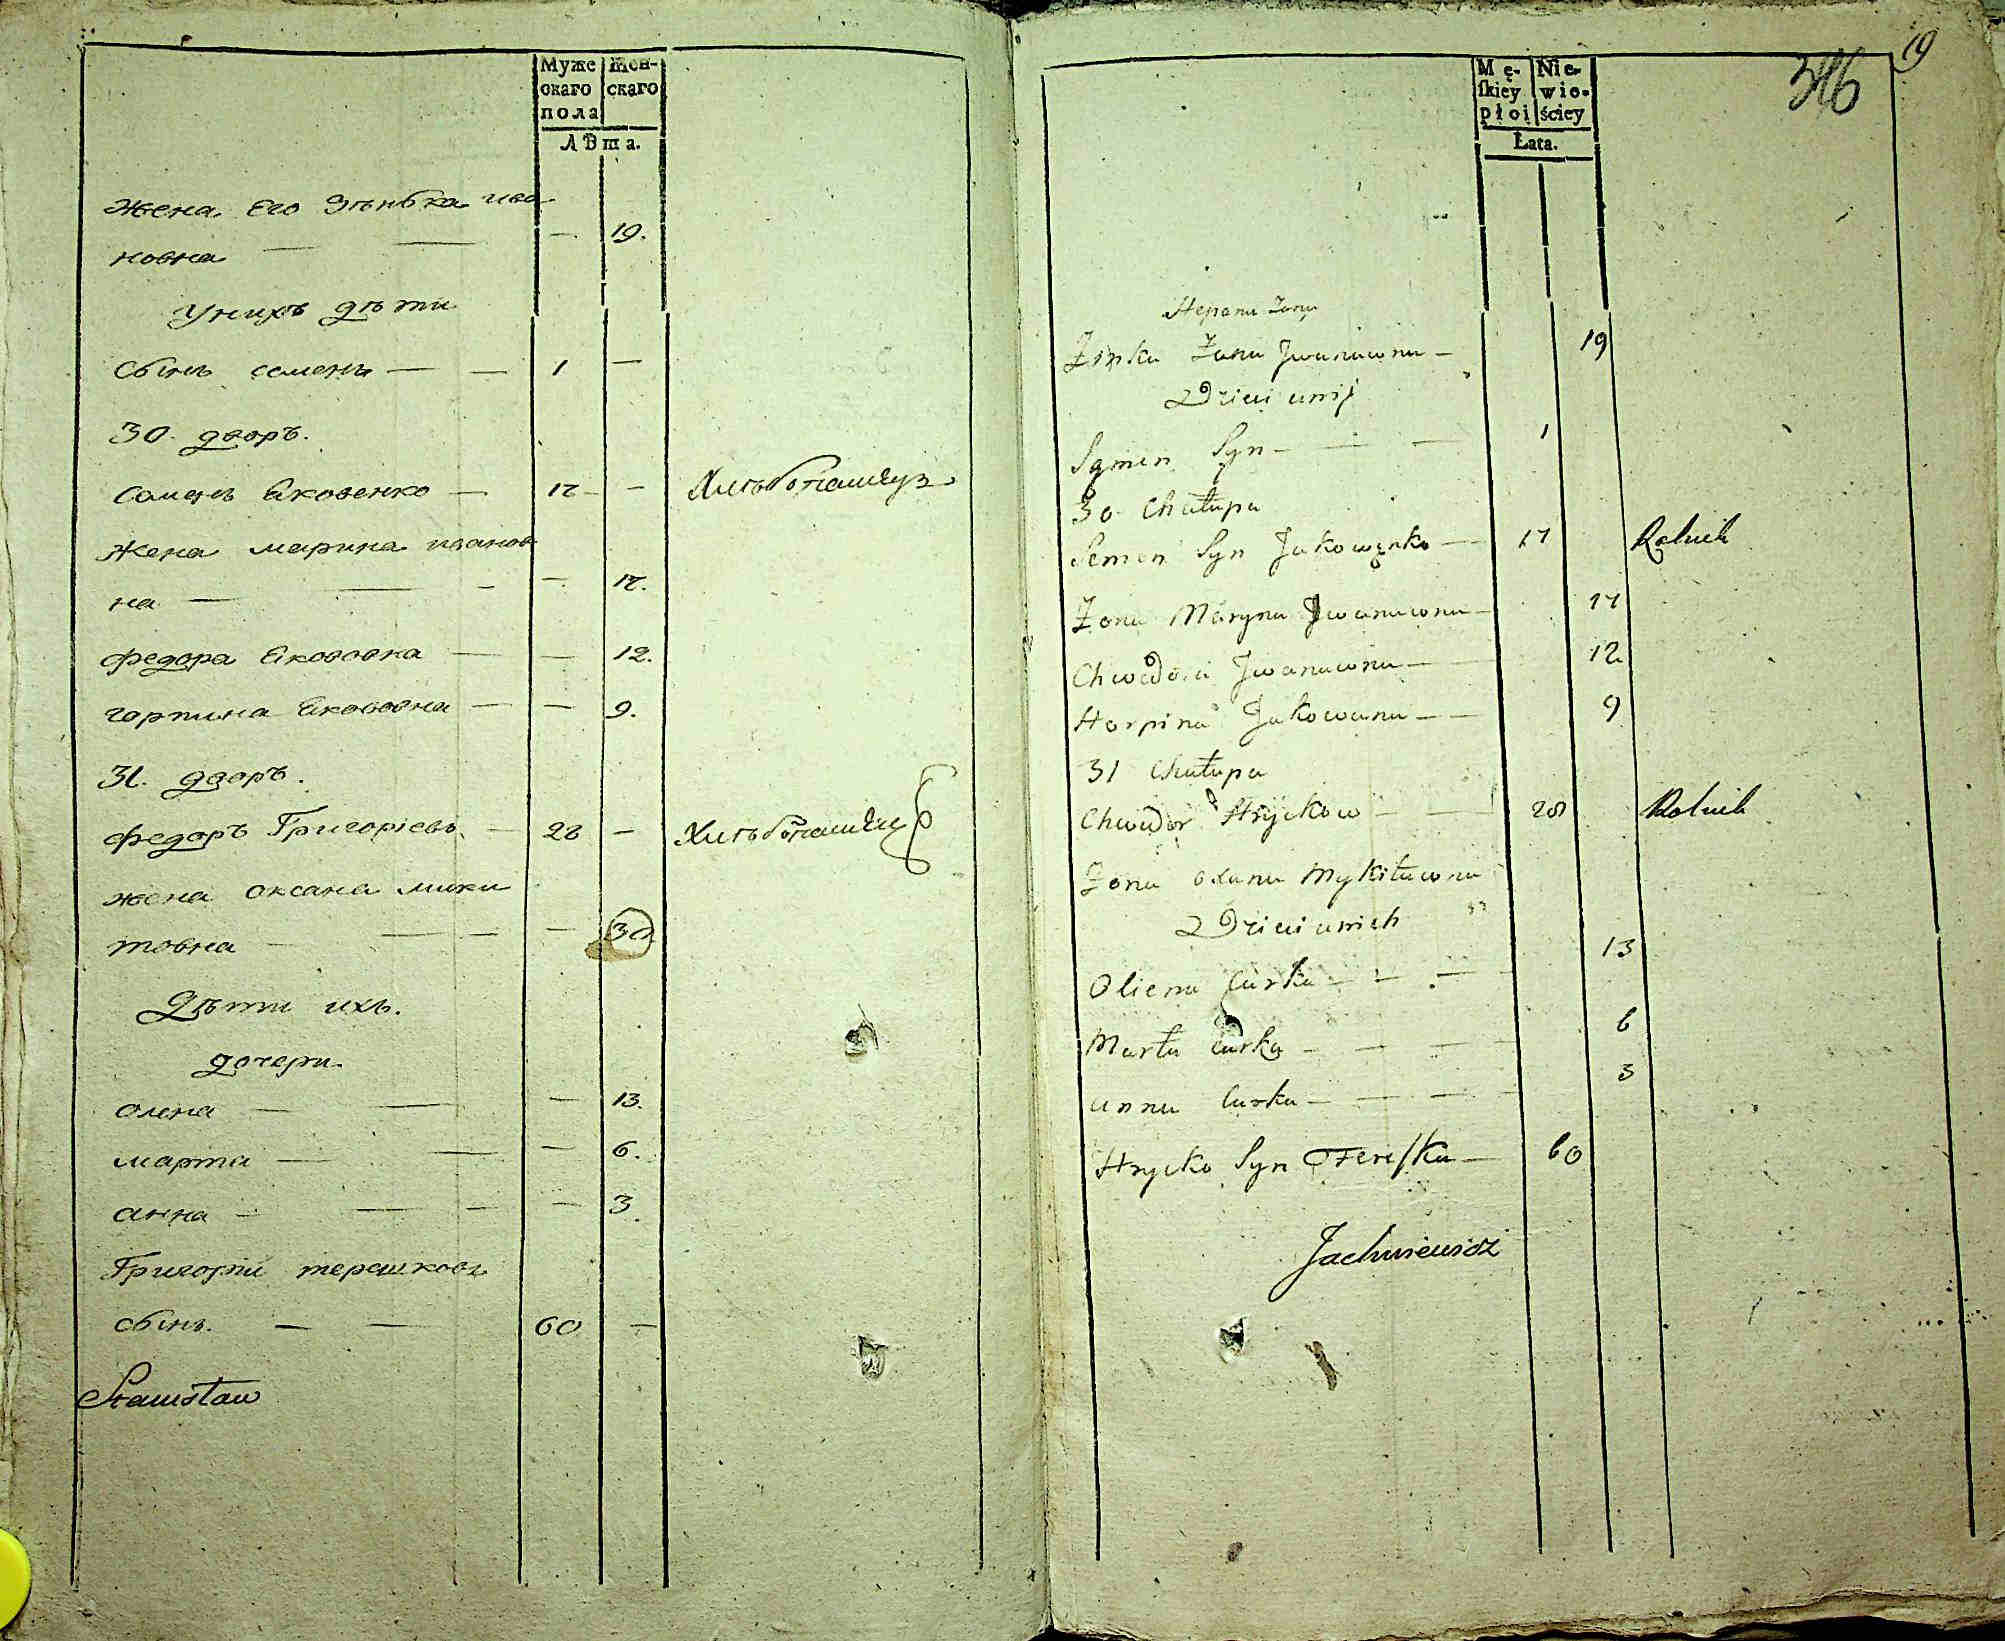 Муже
скаго
пола
Жен-
скаго
Лѣта.
жена его зѣнька ива
новна — — — 19.
Унихъ дѣти
сынъ семенъ — — 1 —
30. дворъ.
Семенъ Яковенко — 17 — — Хлѣбопашецъ
Жена марина иванов
на — — — — 17.
федора Якововна — — 12.
горпина Якововна — — 9.
31. дворъ.
федоръ Григоріевъ — 28 — Хлѣбопашецъ
жена оксана мики
товна — — — — 30
Дѣти ихъ.
дочери.
олена — — — 13.
марта — — — 6.
анна — — — — 3.
Григорій терешковъ
сынъ. — — 60 —
Stanisław
19
346
Mę-
ſkiey
płoi
Nie-
wie-
ściey
Łata.
Stepana Żona
Zinka Żona Jwanawna — 19
Dzieci unij
Semen Syn — — — 1
30 Chałupa
Semen Syn Jakowenko — 17 Rolnik
Żona Maryna Jwanawna — 17
Chwedora Jwanawna — 12
Horpina Jakowana — — 9
31 Chałupa
Chwedor Hryckow — — 28 Rolnik
Żona oxana Mykitawna
Dzieci unich
Oliena Curka — — — 13
Marta Curka — — — 6
anna Curka — — — — 3
Hrycko Syn Tereſzka — 60
Jachniewicz